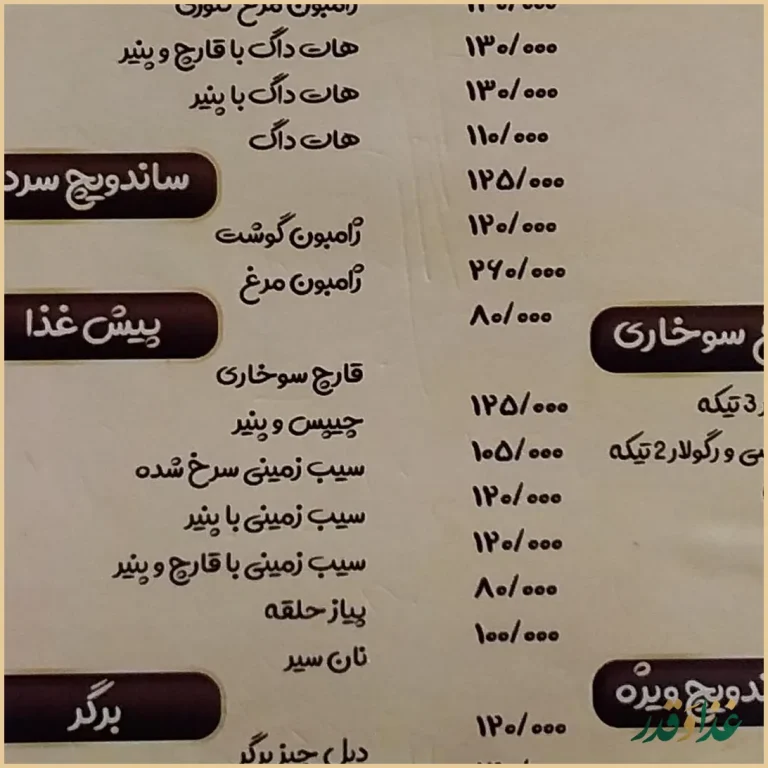 ۱۳۰/۰۰۰
۱۳۰/۰۰۰
۱۱۰/۰۰۰
۱۲۵/۰۰۰
۱۲۰/۰۰۰
۲۶۰/۰۰۰
۸۰/۰۰۰
سوخاری
3 تیکه ۱۲۵/۰۰۰
و رگولار 2 تیکه ۱۰۵/۰۰۰
۱۲۰/۰۰۰
۱۲۰/۰۰۰
۸۰/۰۰۰
۱۰۰/۰۰۰
ویژه
۱۲۰/۰۰۰
ژامبون مرغ تنوری
هات داگ با قارچ و پنیر
هات داگ با پنیر
هات داگ
ساندویچ سرد
ژامبون گوشت
ژامبون مرغ
پیش غذا
قارچ سوخاری
چیپس و پنیر
سیب زمینی سرخ شده
سیب زمینی با پنیر
سیب زمینی با قارچ و پنیر
پیاز حلقه
نان سیر
برگر
دبل چیز برگر